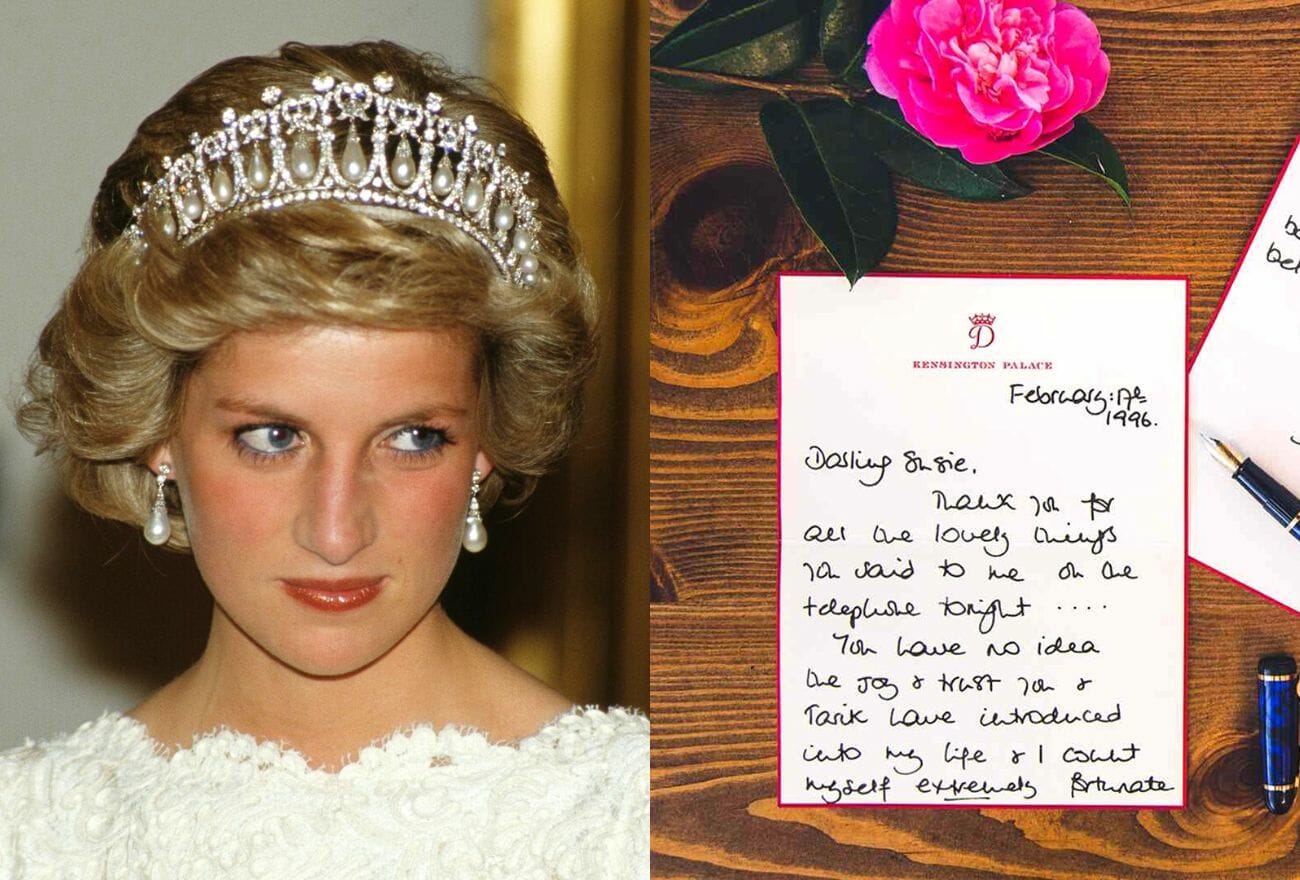 D
KENSINGTON PALACE
February: 17th
1996.
Darling Susie,
Thank you for
all the lovely things
you said to me on the
telephone tonight ....
You have no idea
the joy & trust you &
Tarik have introduced
into my life & I count
myself extremely fortunate
be